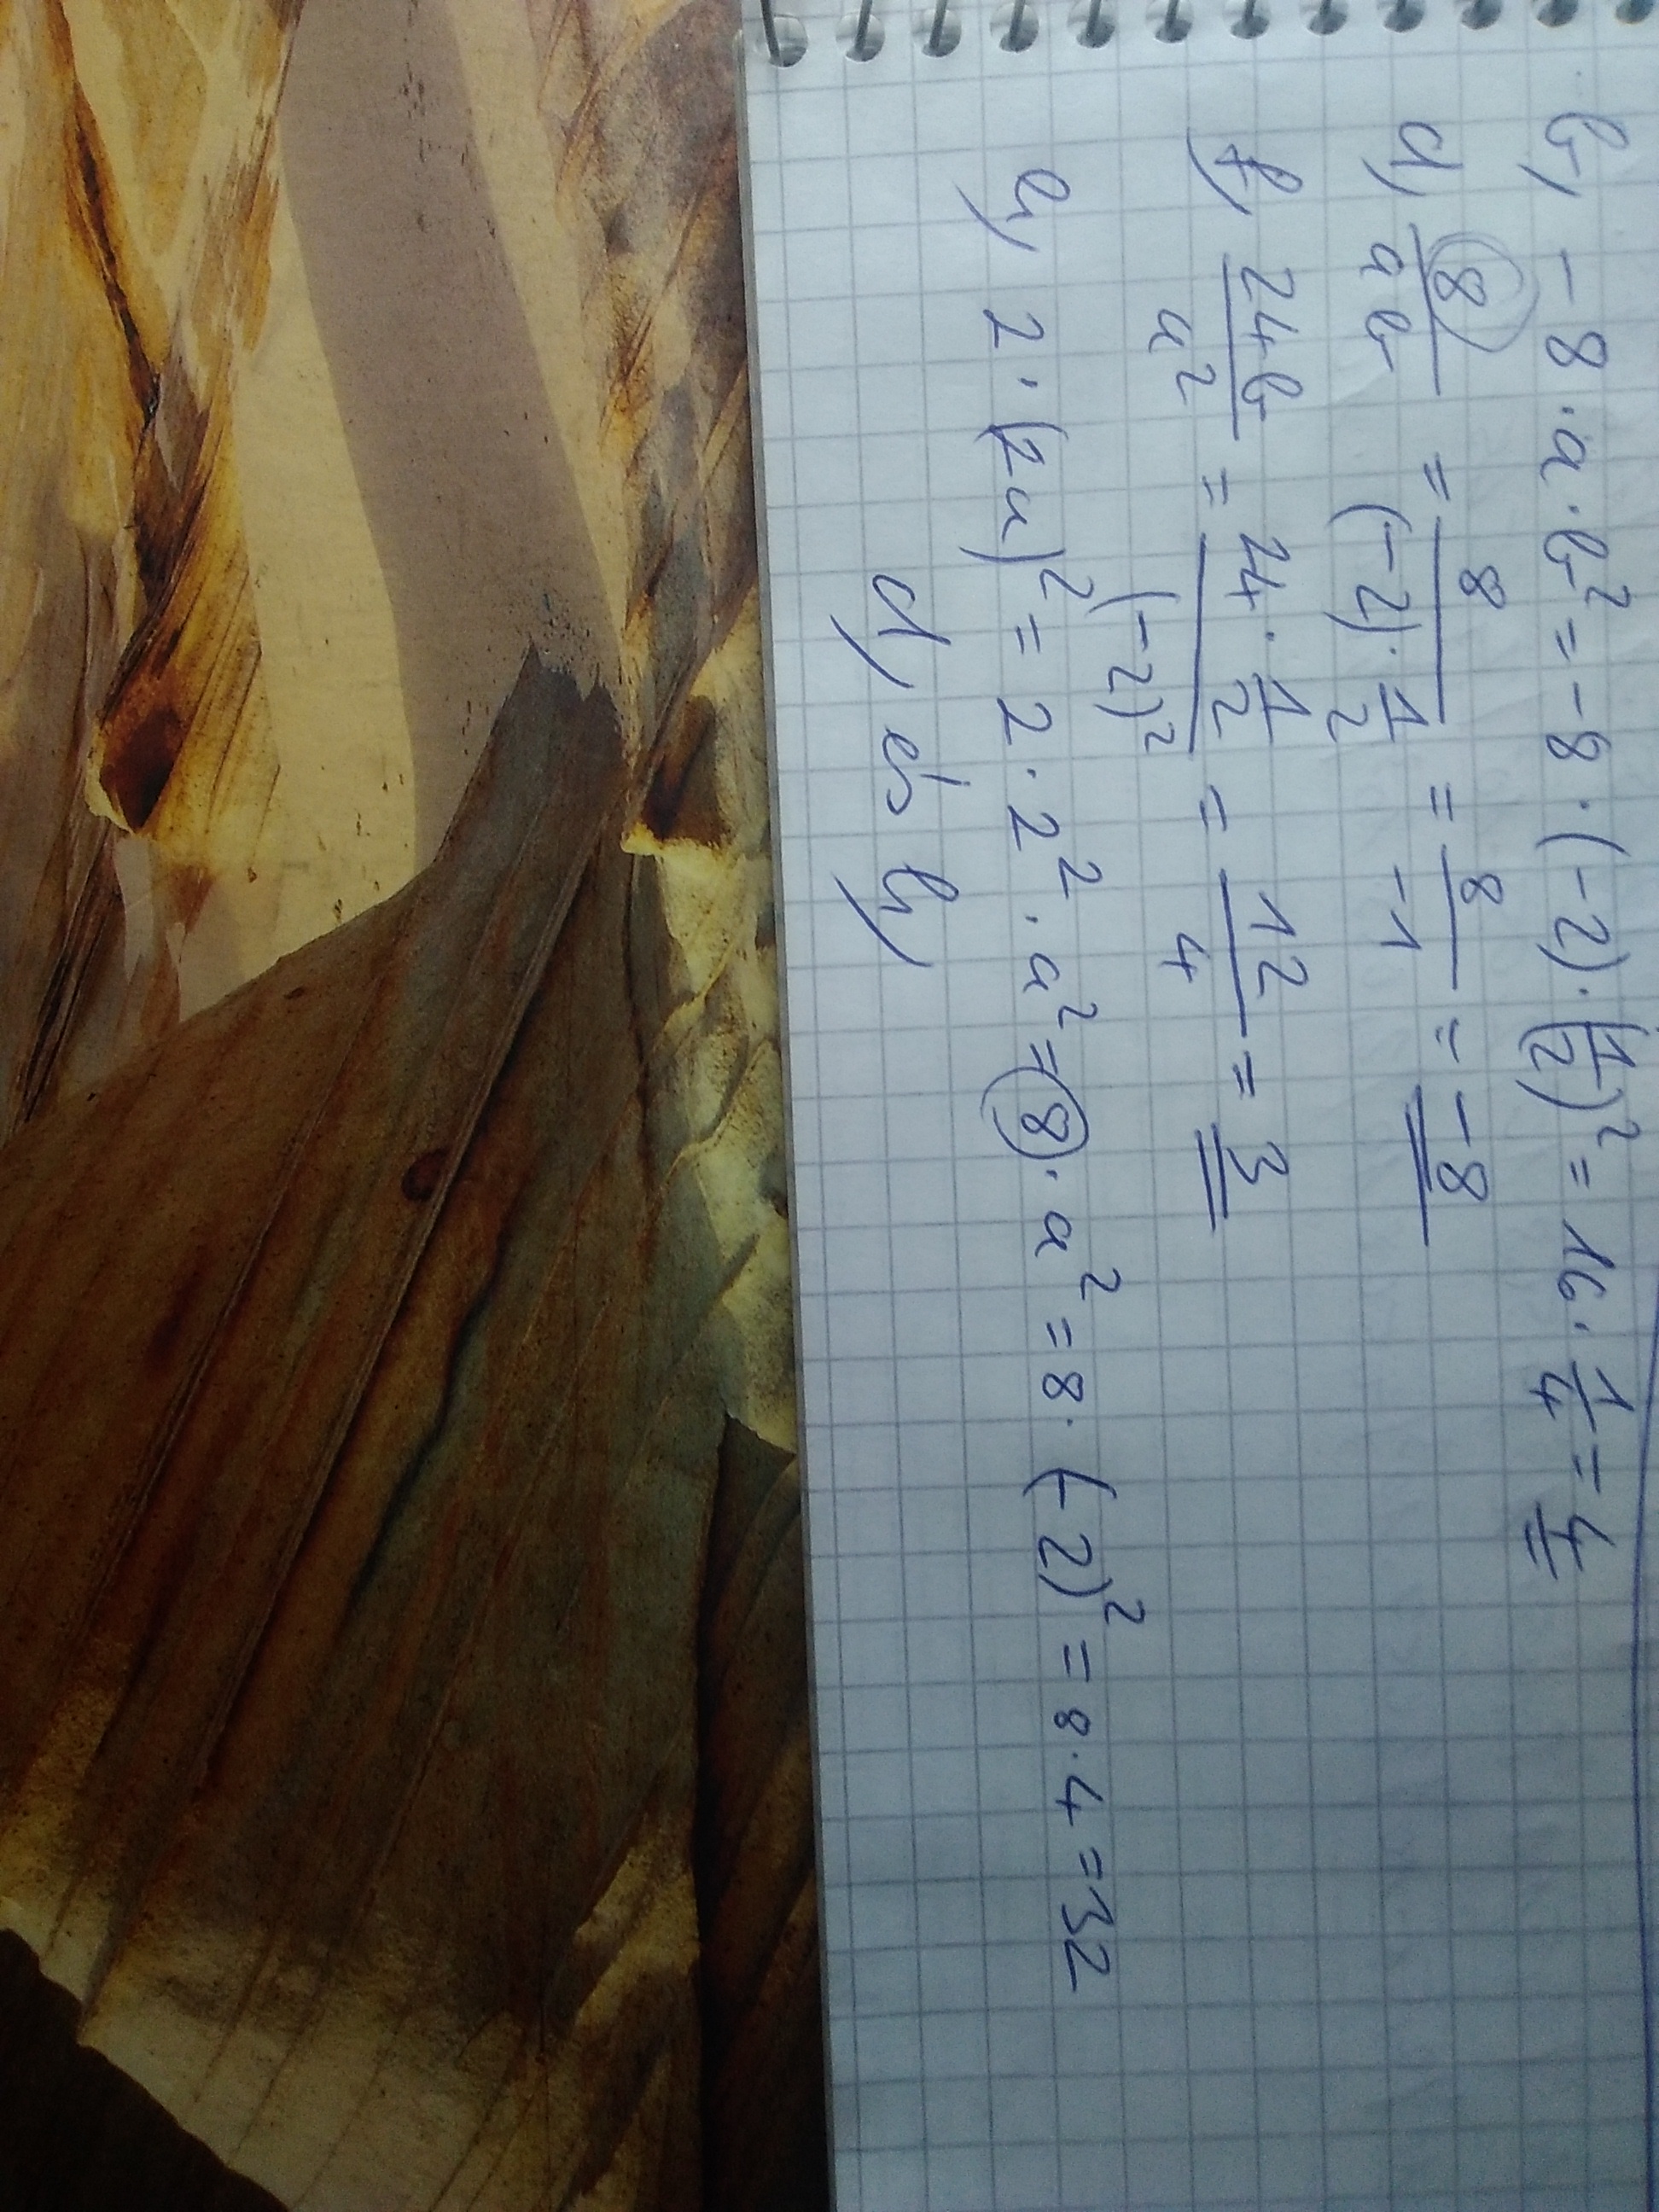 b, -8·a·b² = -8·(-2)·(1/2)² = 16·1/4 = 4
d, 8/ab = 8/((-2)·1/2) = 8/-1 = -8
f, 24b/a² = (24·1/2)/(-2)² = 12/4 = 3
e, 2·(2a)² = 2·2²·a² = 8·a² = 8·(-2)² = 8·4 = 32
d, és b,